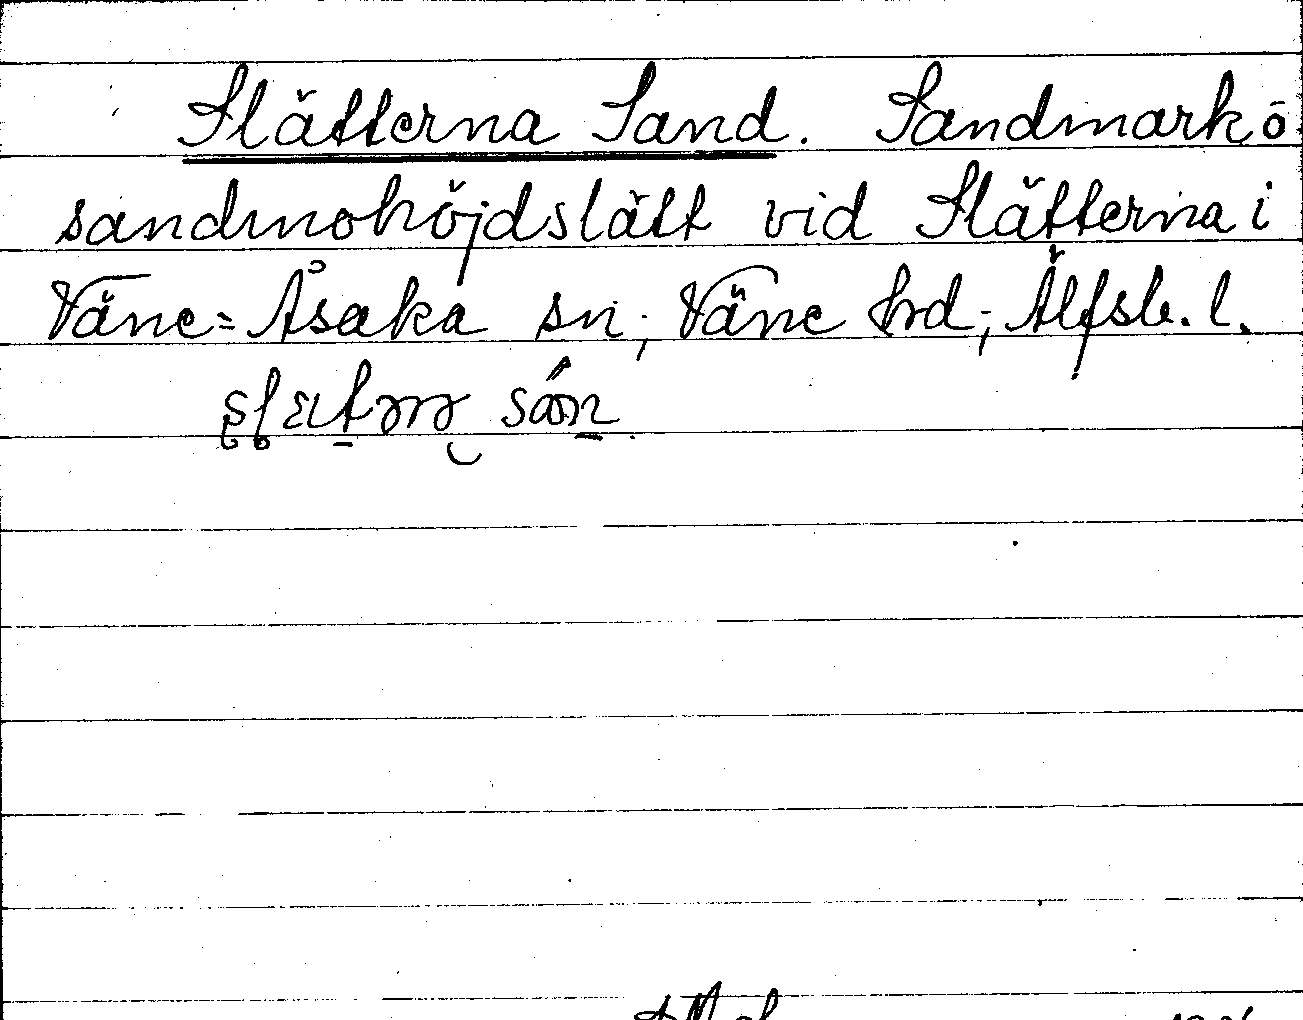 Slätterna Sand. Sandmark ō
sandmohöjdslätt vid Slätterna i
Väne=Åsaka sn; Väne hrd; Älfsb. l.